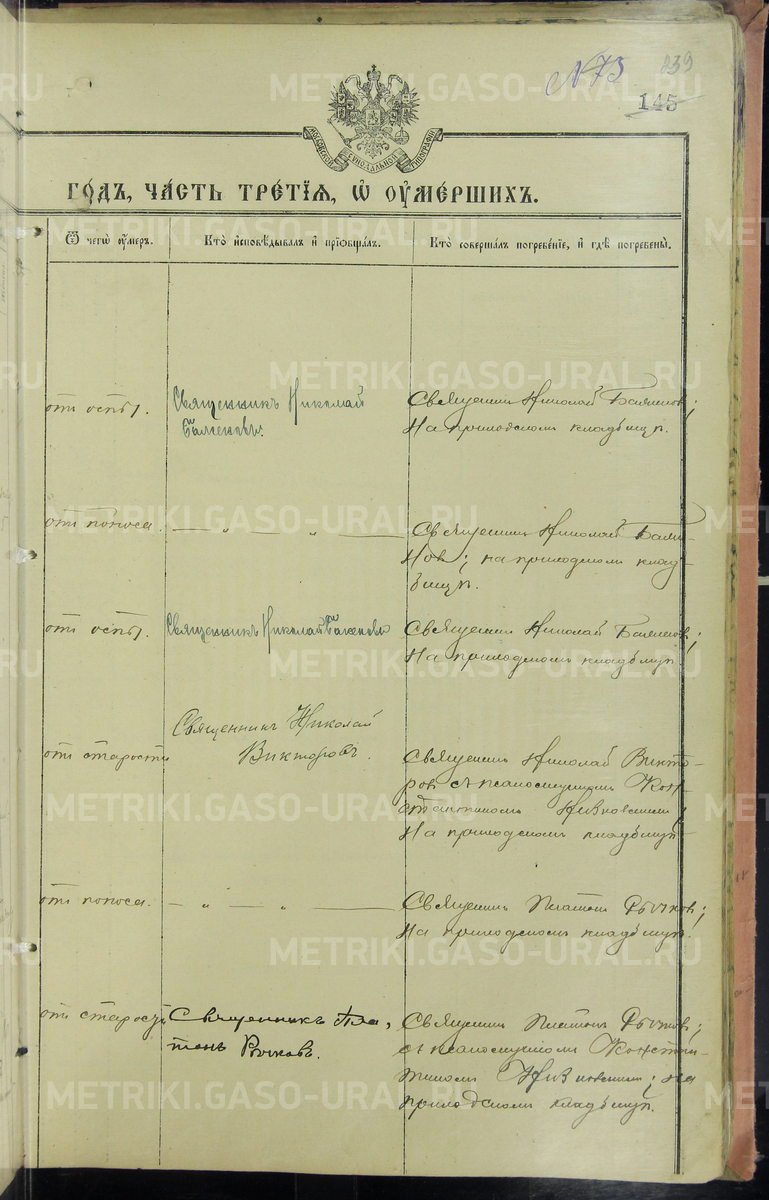 № 73
239
145
МОСКОВСКОЙ СѴНОДАЛЬНОЙ ТИПОГРАФІИ
ГО́ДЪ, ЧА́СТЬ ТРЕ́ТІѦ, Ѽ ОУ҆МЕ́РШИХЪ.
Ѿ чегѡ̀ оу҆́меръ.
Кто̀ и҆сповѣ́дывалъ и҆ прїѡбща́лъ.
Кто̀ соверша́лъ погребе́нїе, и҆ гдѣ̀ погребены̀.
отъ оспы.
Священникъ Николай
Баженовъ.
Священникъ Николай Баженовъ;
на приходскомъ кладбищѣ.
отъ поноса.
— „ — „ —
Священникъ Николай Баже-
новъ; на приходскомъ клад-
бищѣ.
отъ оспы.
Священникъ Николай Баженовъ
Священникъ Николай Баженовъ;
на приходскомъ кладбищѣ.
отъ старости
Священникъ Николай
Викторовъ.
Священникъ Николай Викто-
ровъ съ псаломщикомъ Кон-
стантиномъ
на приходскомъ кладбищѣ
отъ поноса.
— „ — „ —
Священникъ Платонъ Рычковъ;
на приходскомъ кладбищѣ.
отъ старости
Священникъ Пла-
тонъ Рычковъ.
Священникъ Платонъ Рычковъ;
съ псаломщикомъ Констан-
тиномъ на
приходскомъ кладбищѣ.
METRIKI.GASO-URAL.RU